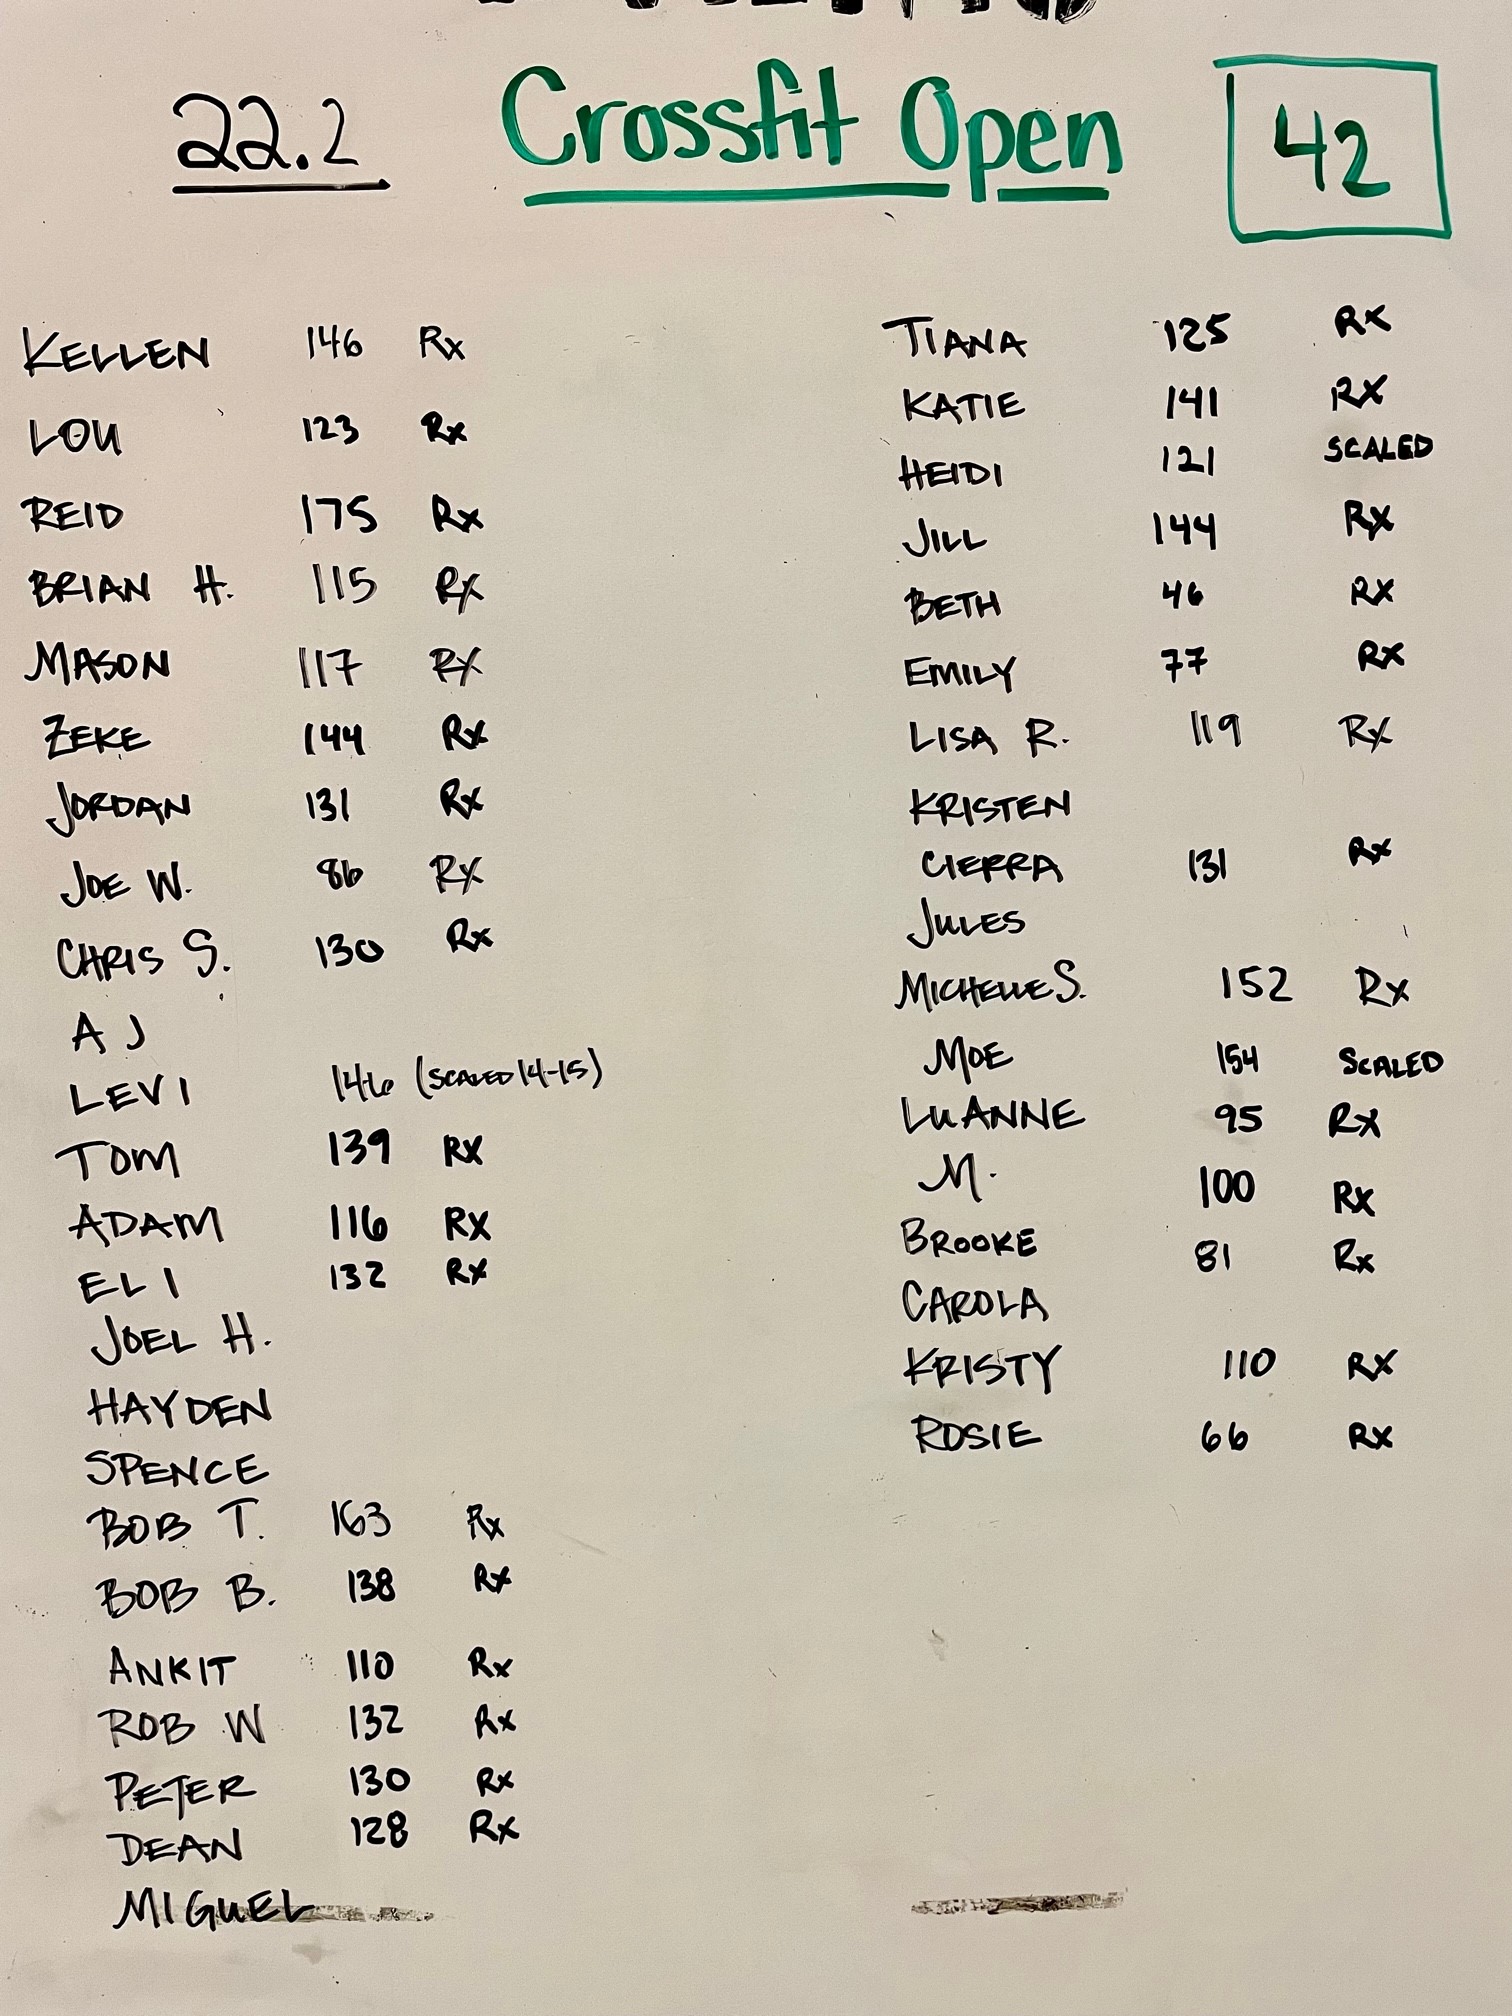 22.2 Crossfit Open 42
KELLEN 146 Rx
LOU 123 Rx
REID 175 Rx
BRIAN H. 115 Rx
MASON 117 RX
ZEKE 144 Rx
JORDAN 131 Rx
JOE W. 86 RX
CHRIS S. 130 Rx
AJ
LEVI 146 (SCALED 14-15)
TOM 139 RX
ADAM 116 RX
ELI 132 RX
JOEL H.
HAYDEN
SPENCE
BOB T. 163 Rx
BOB B. 138 Rx
ANKIT 110 Rx
ROB W 132 Rx
PETER 130 Rx
DEAN 128 Rx
MIGUEL
TIANA 125 RX
KATIE 141 RX
HEIDI 121 SCALED
JILL 144 RX
BETH 46 RX
EMILY 77 RX
LISA R. 119 RX
KRISTEN
CIERRA 131 Rx
JULES
MICHELLE S. 152 Rx
MOE 154 SCALED
LUANNE 95 RX
M. 100 RX
BROOKE 81 Rx
CAROLA
KRISTY 110 RX
ROSIE 66 RX